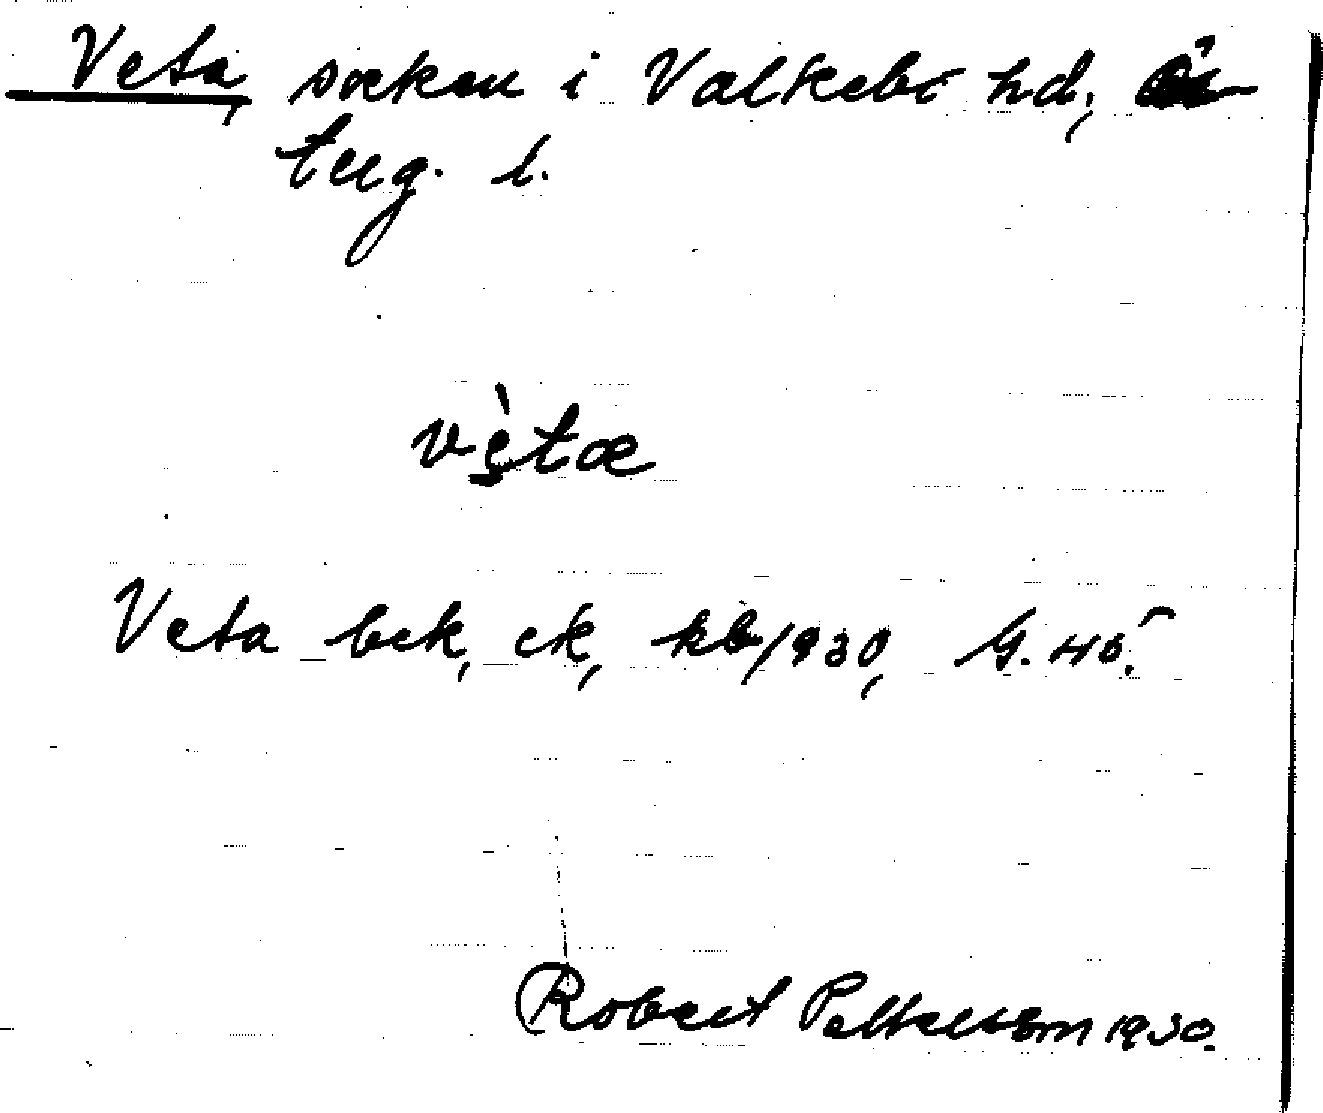 Veta, socken i Valkebo hd, Ös-
terg. l.
vètæ
Veta bck, ck, kb/930, G. 45.
Robert Pettersson 1930.